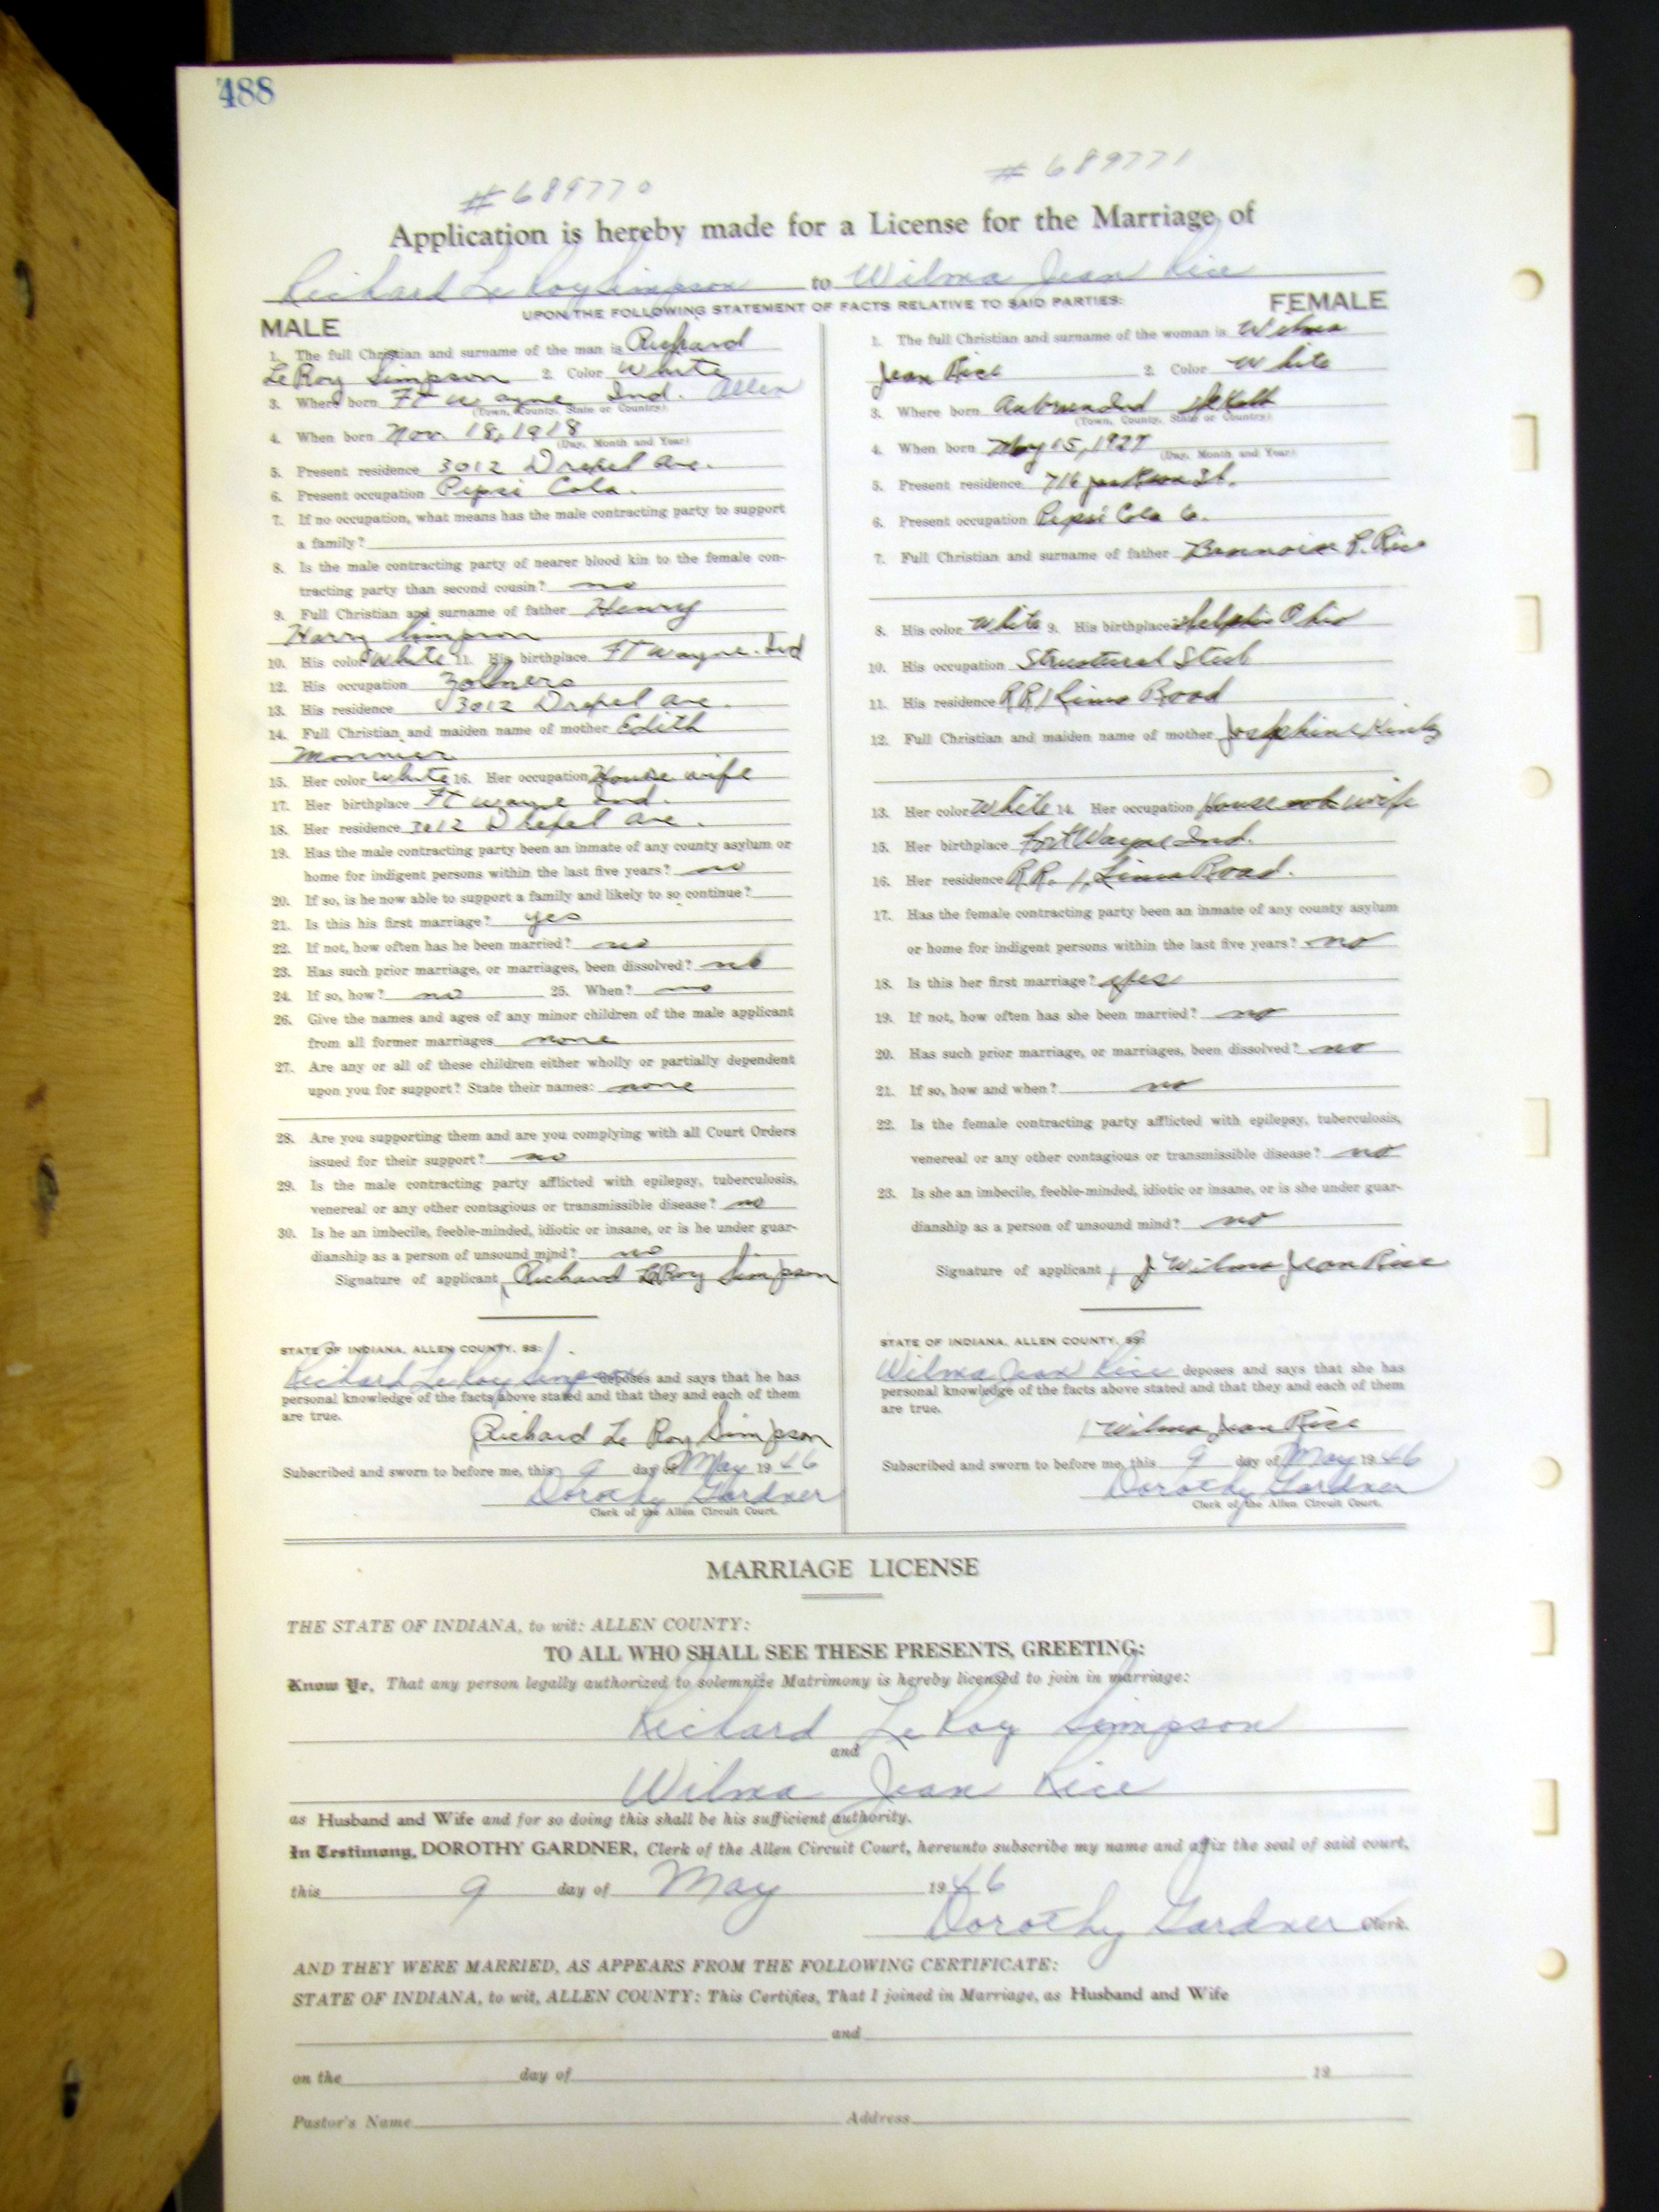 488
# 689770
# 689771
Application is hereby made for a License for the Marriage of
Richard Le Roy Simpson to Wilma Jean Rice
UPON THE FOLLOWING STATEMENT OF FACTS RELATIVE TO SAID PARTIES:
MALE
1. The full Christian and surname of the man is Richard
LeRoy Simpson 2. Color White
3. Where born Ft Wayne Ind. Allen
(Town, County, State or Country)
4. When born Nov. 18, 1918
(Day, Month and Year)
5. Present residence 3012 Drexel Ave.
6. Present occupation Pepsi Cola.
7. If no occupation, what means has the male contracting party to support
a family?
8. Is the male contracting party of nearer blood kin to the female con-
tracting party than second cousin? no
9. Full Christian and surname of father Henry
Harry Simpson
10. His color White 11. His birthplace Ft Wayne. Ind
12. His occupation Zollners
13. His residence 3012 Drexel Ave.
14. Full Christian and maiden name of mother Edith
Monnier
15. Her color White 16. Her occupation House wife
17. Her birthplace Ft Wayne Ind.
18. Her residence 3012 Drexel Ave.
19. Has the male contracting party been an inmate of any county asylum or
home for indigent persons within the last five years? no
20. If so, is he now able to support a family and likely to so continue?
21. Is this his first marriage? yes
22. If not, how often has he been married? no
23. Has such prior marriage, or marriages, been dissolved? no
24. If so, how? no 25. When? no
26. Give the names and ages of any minor children of the male applicant
from all former marriages none
27. Are any or all of these children either wholly or partially dependent
upon you for support? State their names: none
28. Are you supporting them and are you complying with all Court Orders
issued for their support? no
29. Is the male contracting party afflicted with epilepsy, tuberculosis,
venereal or any other contagious or transmissible disease? no
30. Is he an imbecile, feeble-minded, idiotic or insane, or is he under guar-
dianship as a person of unsound mind? no
Signature of applicant Richard LeRoy Simpson
STATE OF INDIANA, ALLEN COUNTY, SS:
Richard Le Roy Simpson deposes and says that he has
personal knowledge of the facts above stated and that they and each of them
are true.
Richard Le Roy Simpson
Subscribed and sworn to before me, this 9 day of May 1946
Dorothy Gardner
Clerk of the Allen Circuit Court.
FEMALE
1. The full Christian and surname of the woman is Wilma
Jean Rice 2. Color White
3. Where born Auburn Ind DeKalb
(Town, County, State or Country)
4. When born May 15, 1927
(Day, Month and Year)
5. Present residence 716 Jackson St.
6. Present occupation Pepsi Cola Co.
7. Full Christian and surname of father R. Rice
8. His color White 9. His birthplace Delphis Ohio
10. His occupation Structural Steel
11. His residence RR 1 Lima Road
12. Full Christian and maiden name of mother Josephine
13. Her color White 14. Her occupation House wife
15. Her birthplace Fort Wayne Ind.
16. Her residence RR. 1, Lima Road.
17. Has the female contracting party been an inmate of any county asylum
or home for indigent persons within the last five years? no
18. Is this her first marriage? yes
19. If not, how often has she been married? no
20. Has such prior marriage, or marriages, been dissolved? no
21. If so, how and when? no
22. Is the female contracting party afflicted with epilepsy, tuberculosis,
venereal or any other contagious or transmissible disease? no
23. Is she an imbecile, feeble-minded, idiotic or insane, or is she under guar-
dianship as a person of unsound mind? no
Signature of applicant Wilma Jean Rice
STATE OF INDIANA, ALLEN COUNTY, SS:
Wilma Jean Rice deposes and says that she has
personal knowledge of the facts above stated and that they and each of them
are true.
Wilma Jean Rice
Subscribed and sworn to before me, this 9 day of May 1946
Dorothy Gardner
Clerk of the Allen Circuit Court.
MARRIAGE LICENSE
THE STATE OF INDIANA, to wit: ALLEN COUNTY:
TO ALL WHO SHALL SEE THESE PRESENTS, GREETING:
Know Ye, That any person legally authorized to solemnize Matrimony is hereby licensed to join in marriage:
Richard Le Roy Simpson
and
Wilma Jean Rice
as Husband and Wife and for so doing this shall be his sufficient authority.
In Testimony, DOROTHY GARDNER, Clerk of the Allen Circuit Court, hereunto subscribe my name and affix the seal of said court,
this 9 day of May 1946
Dorothy Gardner Clerk.
AND THEY WERE MARRIED, AS APPEARS FROM THE FOLLOWING CERTIFICATE:
STATE OF INDIANA, to wit, ALLEN COUNTY: This Certifies, That I joined in Marriage, as Husband and Wife
and
on the day of 19
Pastor's Name Address